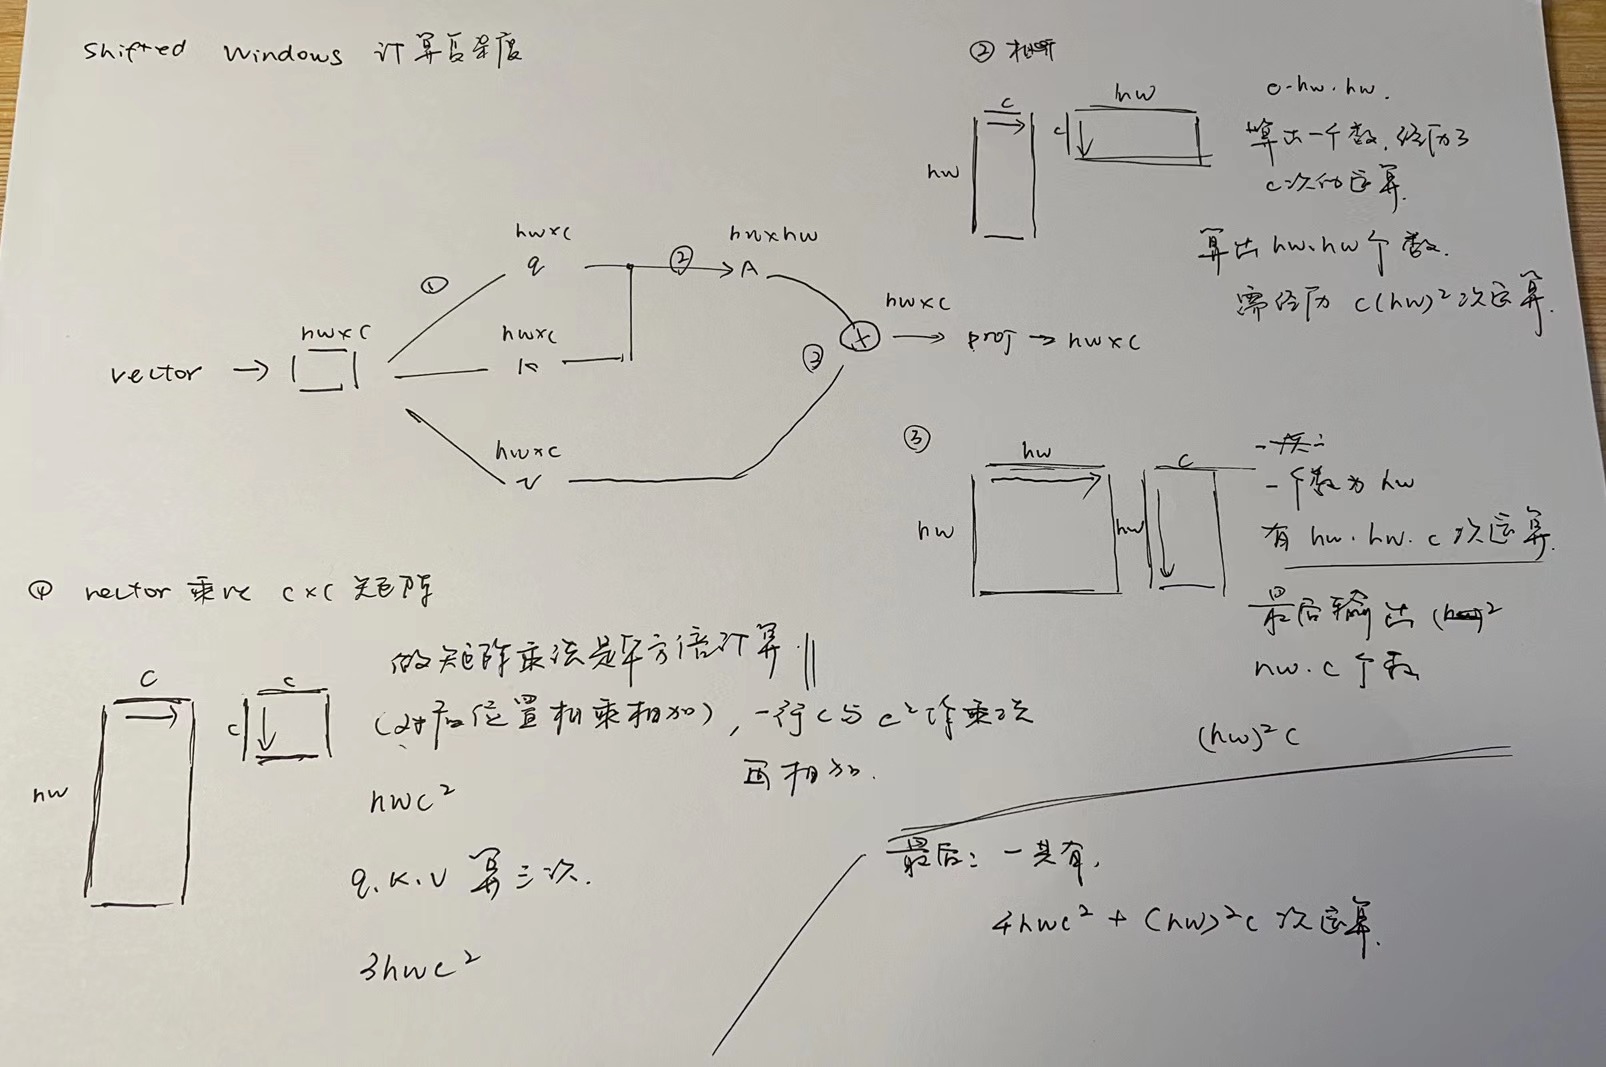 Shifted Windows 计算复杂度
hw×C
q
①
hw×C
vector →
hw×C
k
hw×C
v
②
hw×hw
A
③
hw×C
→ proj → hw×C
① vector 乘以 C×C 矩阵
C
hw
C
C
做矩阵乘法是平方倍计算
(对应位置相乘相加), 一行C与C²作乘法
再相加.
hwC²
q.k.v 算三次.
3hwC²
②
C
hw
C
hw
C·hw·hw.
算出一个数,经历了
C次的运算.
算出hw·hw个数.
需经历 C(hw)²次运算.
③
hw
hw
C
hw
一个数为hw
有hw·hw·C次运算.
最后输出
hw·C个数
(hw)²C
最后: 一共有,
4hwC² + (hw)²C 次运算.